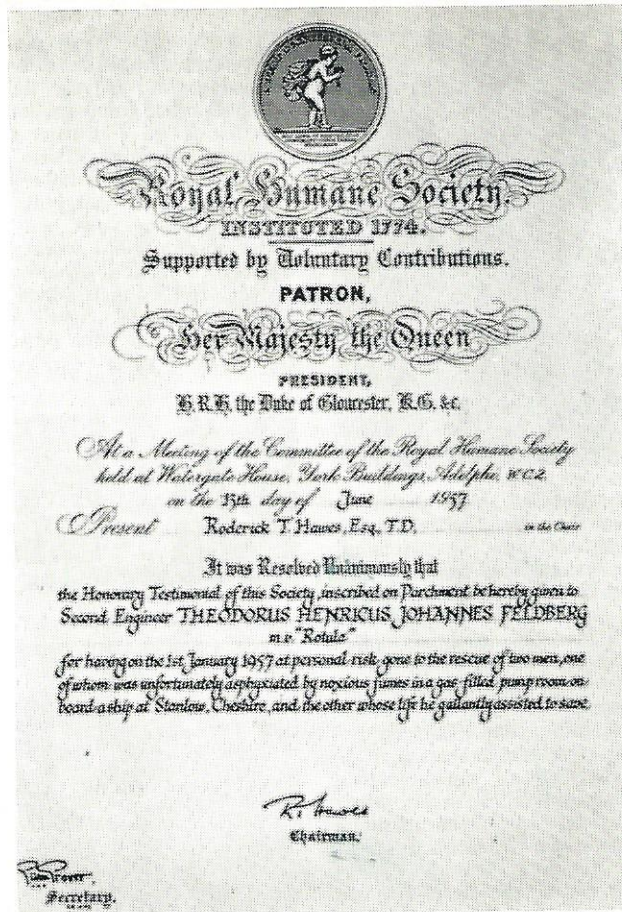 Royal Humane Society.
INSTITUTED 1774.
Supported by Voluntary Contributions.
PATRON,
Her Majesty the Queen
PRESIDENT,
H.R.H. the Duke of Gloucester, K.G. &c.
At a Meeting of the Committee of the Royal Humane Society
held at Watergate House, York Buildings, Adelphi, W.C.2.
on the 13th day of June 1957
Present Roderick T. Hawes, Esq., T.D. in the Chair
It was Resolved Unanimously that
the Honorary Testimonial of this Society, inscribed on Parchment be hereby given to
Second Engineer THEODORUS HENRICUS JOHANNES FELDBERG
m.v. "Rotula"
for having on the 1st January 1957 at personal risk gone to the rescue of two men, one
of whom was unfortunately asphyxiated by noxious fumes in a gas filled pump room on
board a ship at Stanlow, Cheshire, and the other whose life he gallantly assisted to save
Chairman.
Secretary.